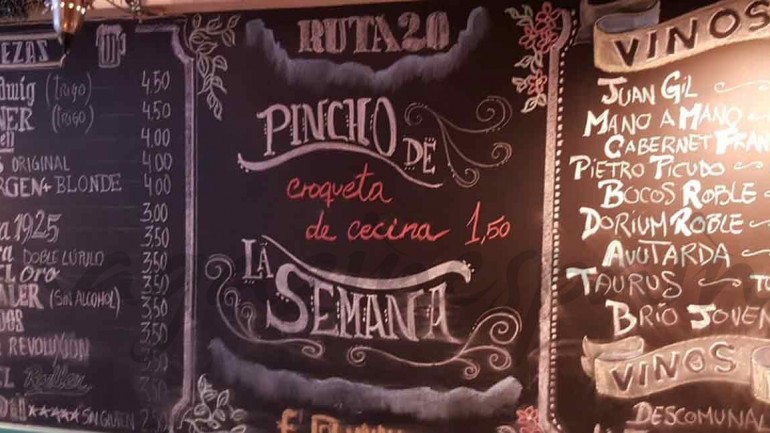 EZAS
dwig (TRIGO) 4,50
NER (TRIGO) 4,50
ell 4.00
S ORIGINAL 4.00
RGEN + BLONDE 4,00
a 1925 3,00
ra DOBLE LÚPULO 3.50
EL ORO 3.50
ALER (SIN ALCOHOL) 3.50
DOS 3.50
A REVOLUCIÓN 3.50
EL Radler
★★★★★ SIN GLUTEN 2.50
RUTA20
PINCHO DE
croqueta
de cecina 1,50
LA
SEMANA
VINOS
JUAN GIL
MANO A MANO
CABERNET FRAN
PIETRO PICUDO
BOCOS ROBLE
DORIUM ROBLE
AVUTARDA
TAURUS TO
BRÍO JOVEN
VINOS
DESCOMUNAL